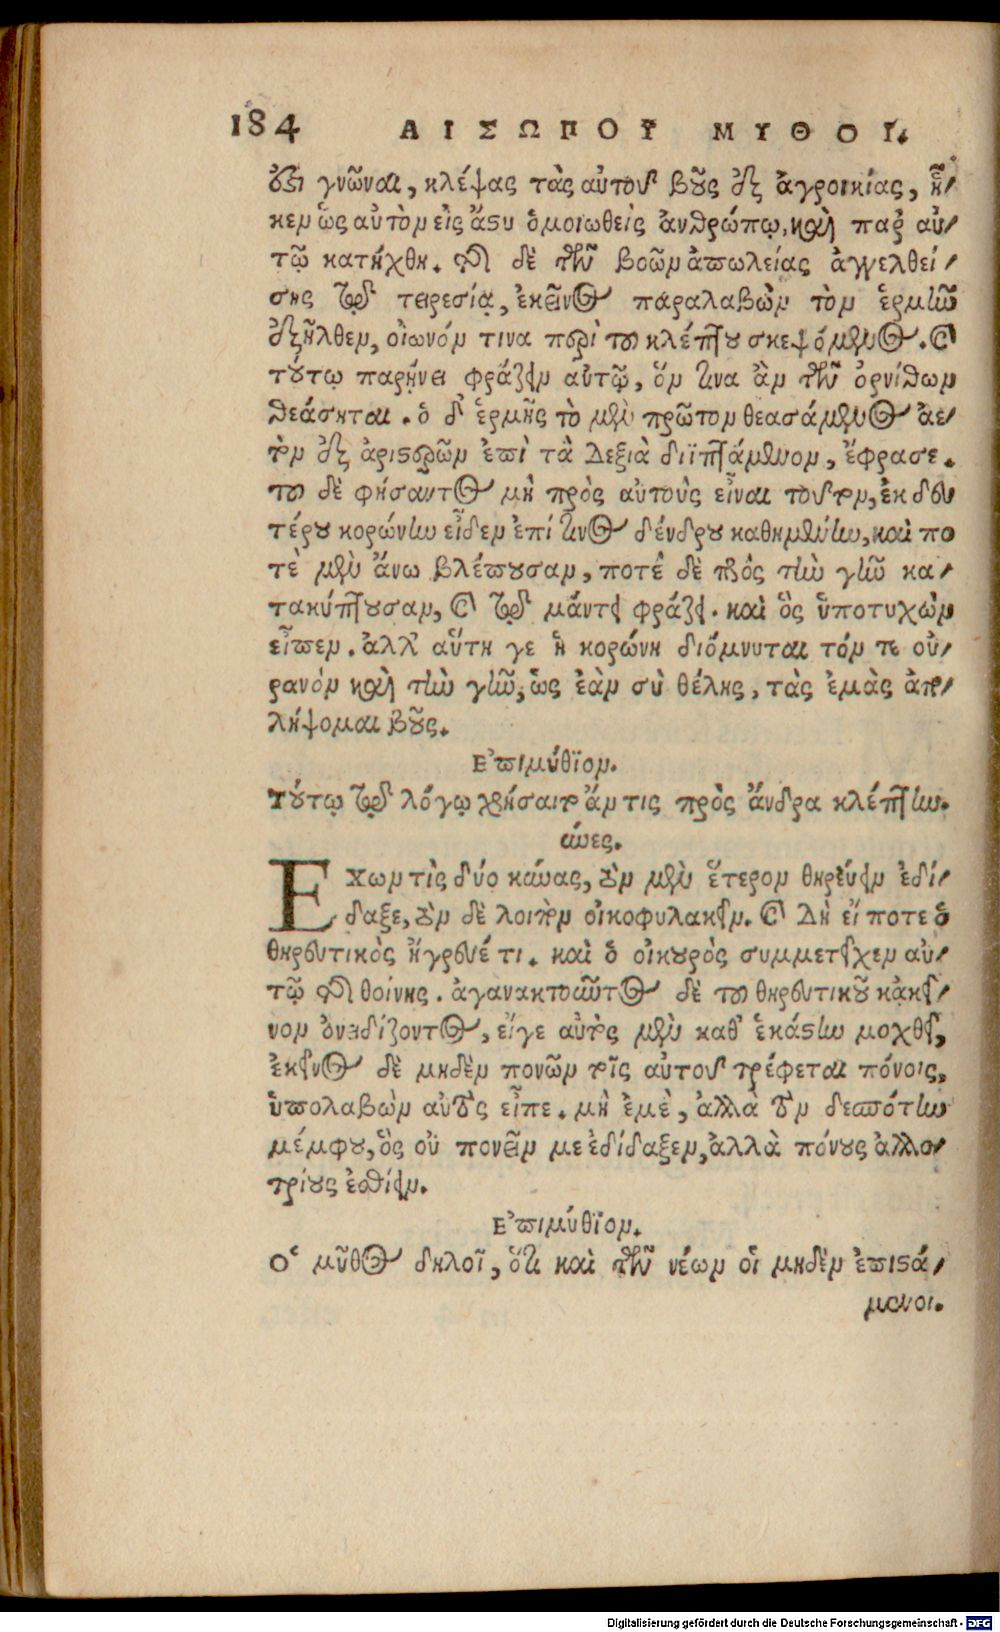 184 ΑΙΣΩΠΟΥ ΜΥΘΟΙ.
ἐστι γνῶναι, κλέψας τὰς αὐτοῦ βοῦς ἐξ ἀγροικίας, ἧ-
κεν ὡς αὐτὸν εἰς ἄστυ ὁμοιωθεὶς ἀνθρώπῳ, καὶ παρ' αὐ-
τῷ κατήχθη. τῆς δὲ τῶν βοῶν ἀπωλείας ἀγγελθεί-
σης τῷ τειρεσίᾳ, ἐκεῖνος παραλαβὼν τὸν ἑρμῆν
ἐξῆλθεν, οἰωνόν τινα περὶ τοῦ κλέπτου σκεψόμενος. καὶ
τούτῳ παρῄνει φράζειν αὐτῷ, ὅν τινα ἂν τῶν ὀρνίθων
θεάσηται. ὁ δ' ἑρμῆς τὸ μὲν πρῶτον θεασάμενος ἀε-
τὸν ἐξ ἀριστερῶν ἐπὶ τὰ δεξιὰ διϊπτάμενον, ἔφρασε.
τοῦ δὲ φήσαντος μὴ πρὸς αὐτοὺς εἶναι τοῦτον, ἐκ δευ
τέρου κορώνην εἶδεν ἐπί τινος δένδρου καθημένην, καὶ πο
τὲ μὲν ἄνω βλέπουσαν, ποτὲ δὲ πρὸς τὴν γῆν κα-
τακύπτουσαν, καὶ τῷ μάντει φράζει. καὶ ὃς ὑποτυχὼν
εἶπεν. ἀλλ' αὕτη γε ἡ κορώνη διόμνυται τόν τε οὐ-
ρανὸν καὶ τὴν γῆν, ὡς ἐὰν σὺ θέλῃς, τὰς ἐμὰς ἀπο-
λήψομαι βοῦς.
Ἐπιμύθϊον.
Τούτῳ τῷ λόγῳ χρήσαιτο ἄν τις πρὸς ἄνδρα κλέπτην.
κύνες.
Ἔχων τὶς δύο κύνας, τὸν μὲν ἕτερον θηρεύειν ἐδί-
δαξε, τὸν δὲ λοιπὸν οἰκοφυλακεῖν. καὶ δὴ εἴ ποτε ὁ
θηρευτικὸς ἤγρευέ τι. καὶ ὁ οἰκουρὸς συμμετεῖχεν αὐ-
τῷ τῆς θοίνης. ἀγανακτοῦντος δὲ τοῦ θηρευτικοῦ κἀκεῖ-
νον ὀνειδίζοντος, εἴγε αὐτὸς μὲν καθ' ἑκάστην μοχθεῖ,
ἐκεῖνος δὲ μηδὲν πονῶν τοῖς αὐτοῦ τρέφεται πόνοις,
ὑπολαβὼν αὐτὸς εἶπε. μὴ ἐμὲ, ἀλλὰ τὸν δεσπότην
μέμφου, ὃς οὐ πονεῖν με ἐδίδαξεν, ἀλλὰ πόνους ἀλλο-
τρίους ἐσθίειν.
Ἐπιμύθϊον.
Ὁ μῦθος δηλοῖ, ὅτι καὶ τῶν νέων οἱ μηδὲν ἐπιστά-
μενοι.
Digitalisierung gefördert durch die Deutsche Forschungsgemeinschaft - DFG